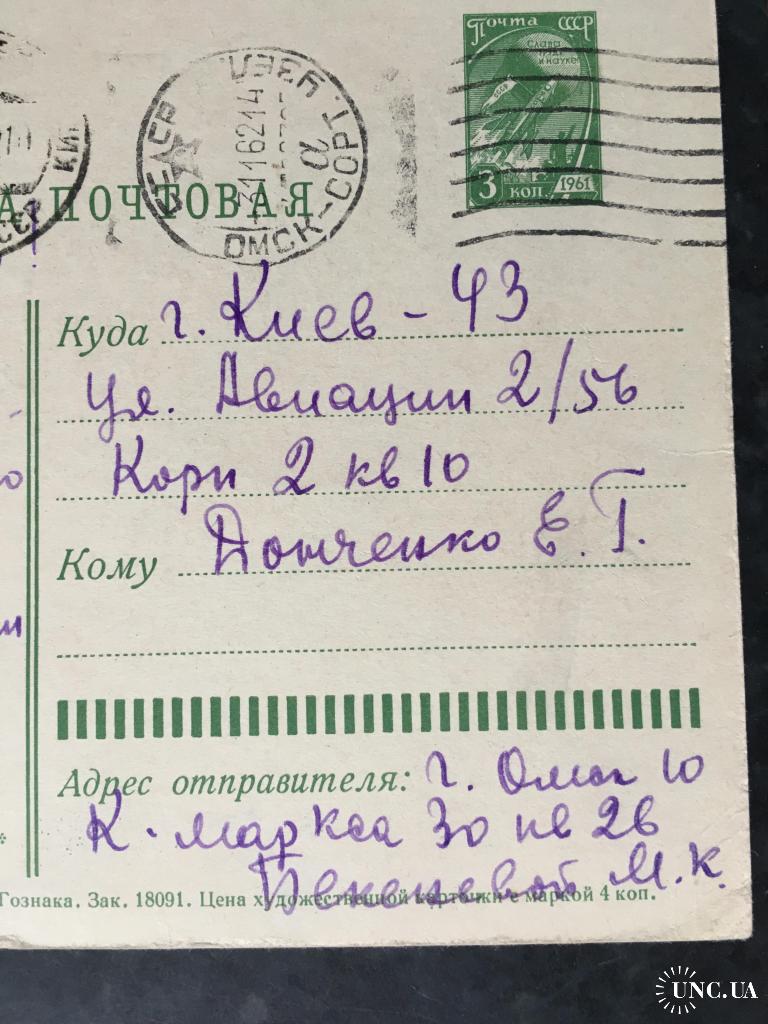 Почта СССР
Слава
и науке
СССР
3 коп. 1961
ОМСК-СОРТ. УЗЕЛ
20
3116214
А ПОЧТОВАЯ
Куда г. Киев - 43
ул. Авиации 2/56
Корп 2 кв 10
Кому Донченко Е. Г.
Адрес отправителя: г. Омск 10
К. Маркса 30 кв 26
М. К.
Гознака. Зак. 18091. Цена художественной карточки с маркой 4 коп.
UNC.UA